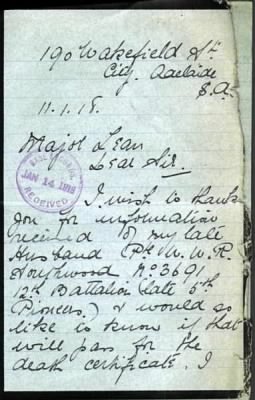 190 Wakefield St.
City. Adelaide
S.A.
11.1.18.
Major Lean
Dear Sir.
BASE RECORDS.
JAN 14 1918
RECEIVED
I wish to thank
you for information
received of my late
Husband (Pte W. W. R.
Southwood No 3691
12th Battalion late 5th
Pioneers.) I would so
like to know if that
will pass for the
death certificate. I